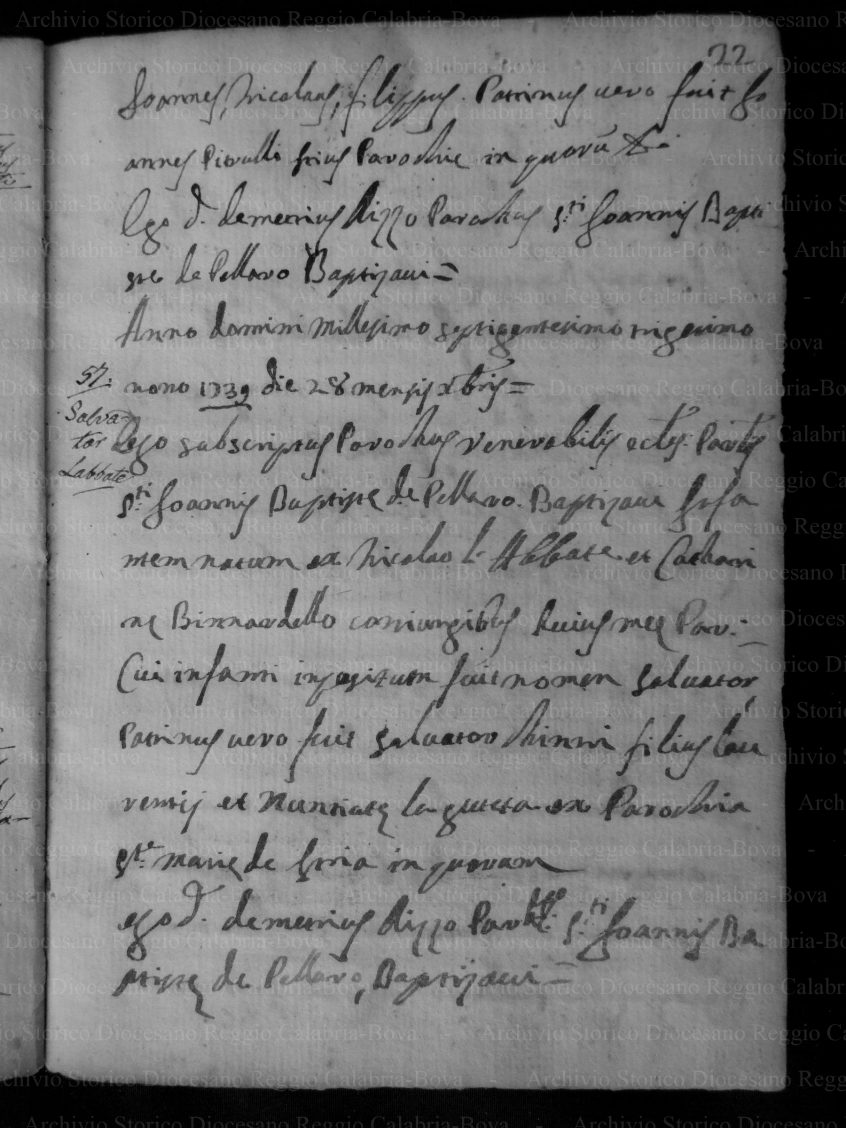 22
Joannes, Nicolaus, filippus. Patrinus vero fuit Jo
annes Pitrulli huius Parochie in quorū &.
Ego D. Demetrius Rizzo Parochus S.ti Joannis Bapti
ste de Pellaro Baptizavi =
Anno domini millesimo septigentesimo trigesimo
nono 1739 die 28 mensis Xbris =
57:
Salva-
tor
Labbate
Ego subscriptus Parochus venerabilis eccle: Parlis
S.ti Joannis Baptiste de Pellaro. Baptizavi Infa
ntem natum ex Nicolao l'Abbate et Cathari
ne Binnardello coniungibus huius mee Par:
Cui infanti impositum fuit nomen Salvator,
Patrinus vero fuit Salvator filius lau
rentij et Nuntiate la ex Parochia
S.te Marie de in quorum
ego D. Demetrius Rizzo S.ti Joannis Ba
ptiste de Pellaro, Baptizavi =
Archivio Storico Diocesano Reggio Calabria-Bova